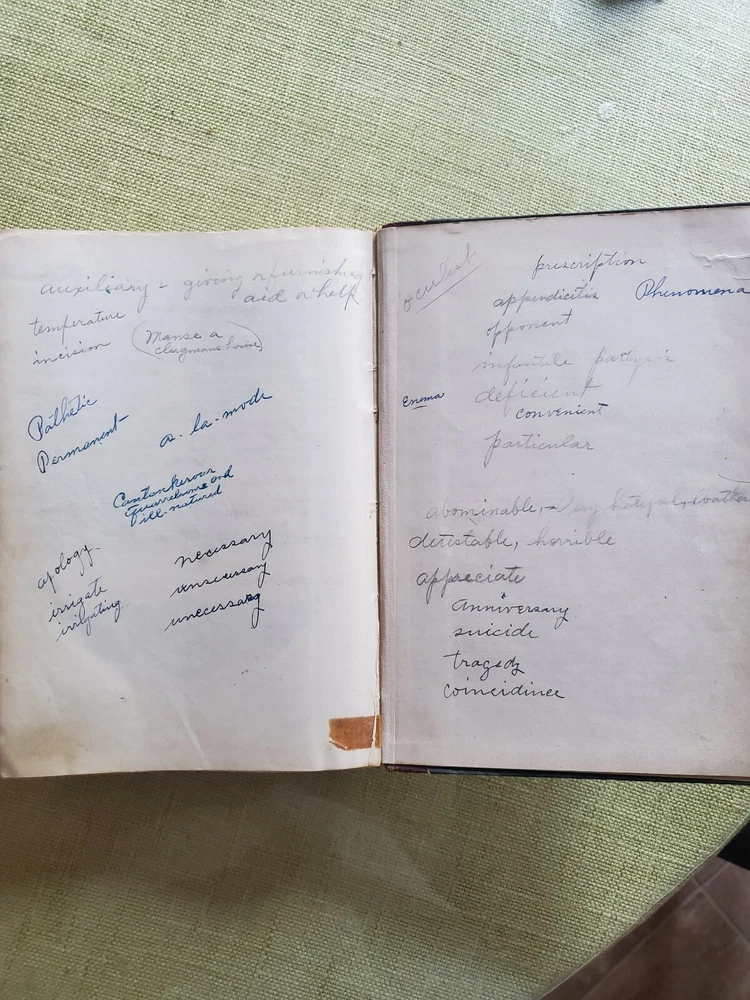 auxiliary = giving or furnishing
aid or help
temperature
incision
Manse a
clergmans house
Pathetic
Permanent
a-la-mode
Cantankerous
quarrelsome and
ill-natured
apology
irrigate
irrigating
necessary
unnecessary
unecessary
oculist
prescription
appendicitis
Phenomena
opponent
infantile
deficient
Enema
convenient
particular
abominable, - very hateful, loathsome
detestable, horrible
appreciate
Anniversary
suicide
tragedy
coincidince